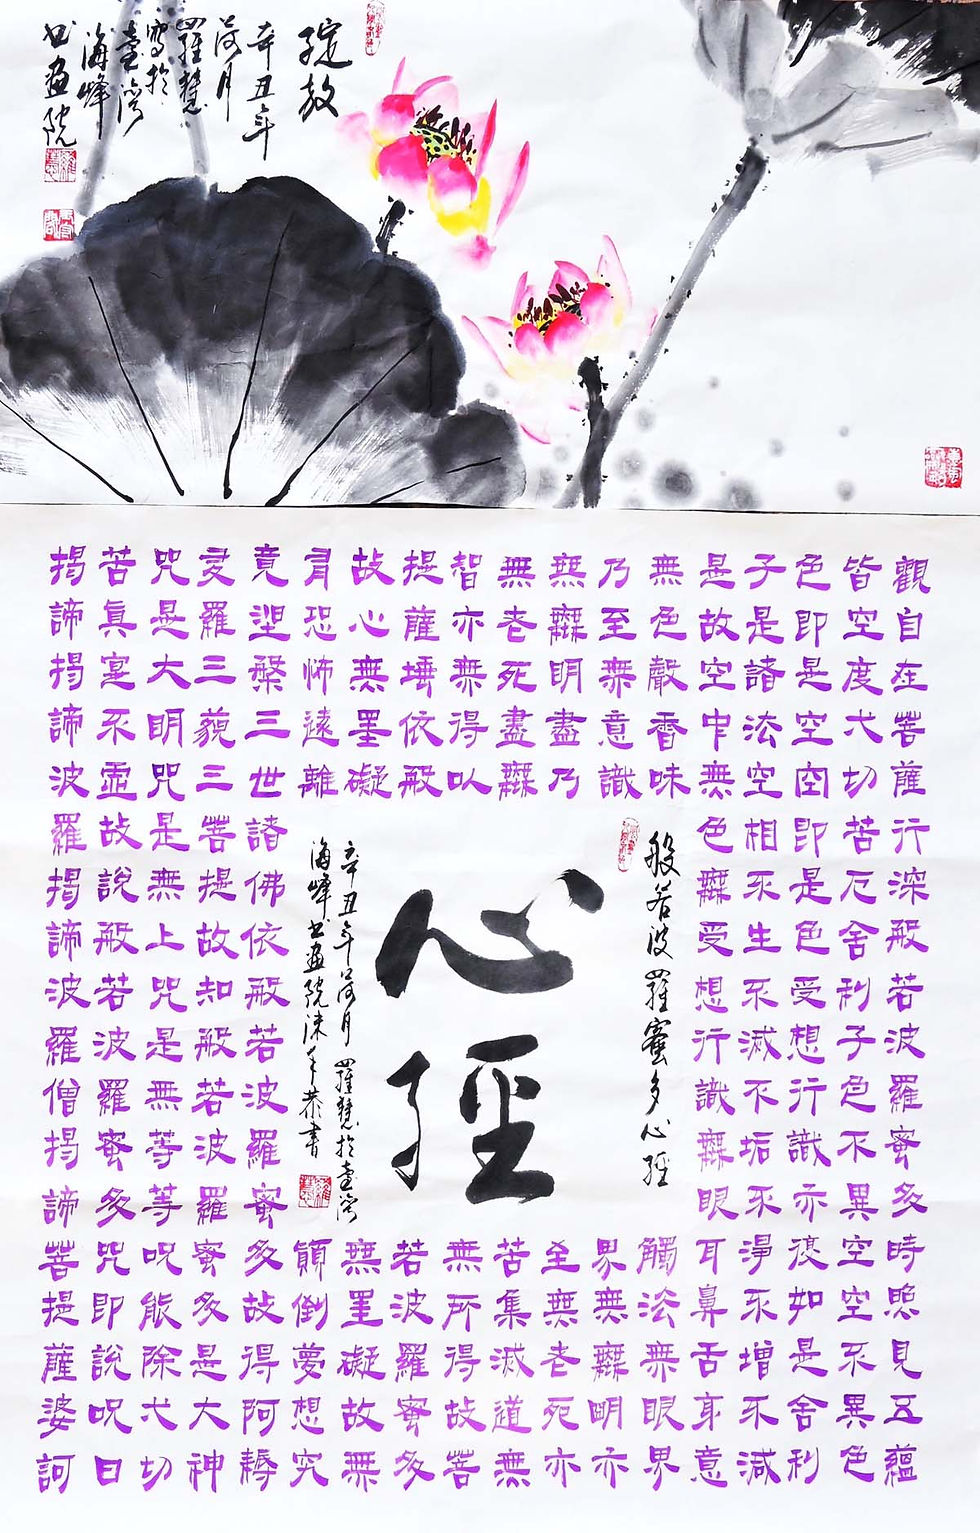 綻放
辛丑年
荷月
羅慧
寫於
臺灣
海峰
书畫院
觀自在菩薩行深般若波羅蜜多時照見五蘊
皆空度弌切苦厄舍利子色不異空空不異色
色即是空空即是色受想行識亦復如是舍利
子是諸法空相不生不滅不垢不淨不增不減
是故空中無色無受想行識無眼耳鼻舌身意
無色聲香味觸法無眼界
乃至無意識界無無明亦
無無明盡乃至無老死亦
無老死盡無苦集滅道無
智亦無得以無所得故菩
提薩埵依般若波羅蜜多
故心無罣礙無罣礙故無
有恐怖遠離顛倒夢想究
竟涅槃三世諸佛依般若波羅蜜多故得阿耨
多羅三藐三菩提故知般若波羅蜜多是大神
咒是大明咒是無上咒是無等等呪能除弌切
苦真實不虛故說般若波羅蜜多咒即說呪曰
揭諦揭諦波羅揭諦波羅僧揭諦菩提薩婆訶
般若波羅蜜多心經
心經
辛丑年荷月羅慧於臺灣
海峰书畫院涑手恭書